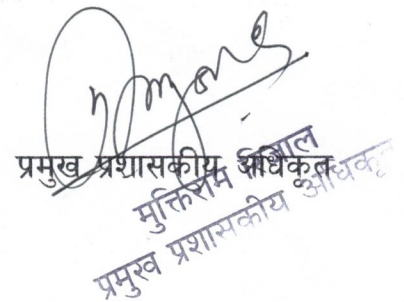 प्रमुख प्रशासकीय अधिकृत
मुक्तिराम
प्रमुख प्रशासकीय अधिकृत